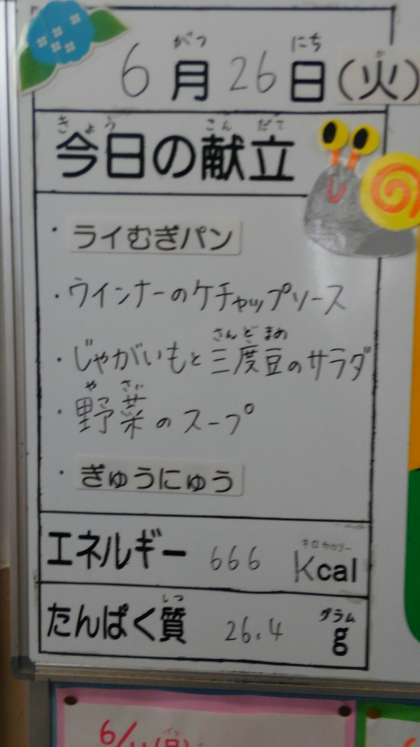 がつ にち
6月26日(火)
きょう こんだて
今日の献立
・ライむぎパン
・ウインナーのケチャップソース
さんどまめ
・じゃがいもと三度豆のサラダ
やさい
・野菜のスープ
・ぎゅうにゅう
キロカロリー
エネルギー 666 Kcal
しつ グラム
たんぱく質 26.4 g